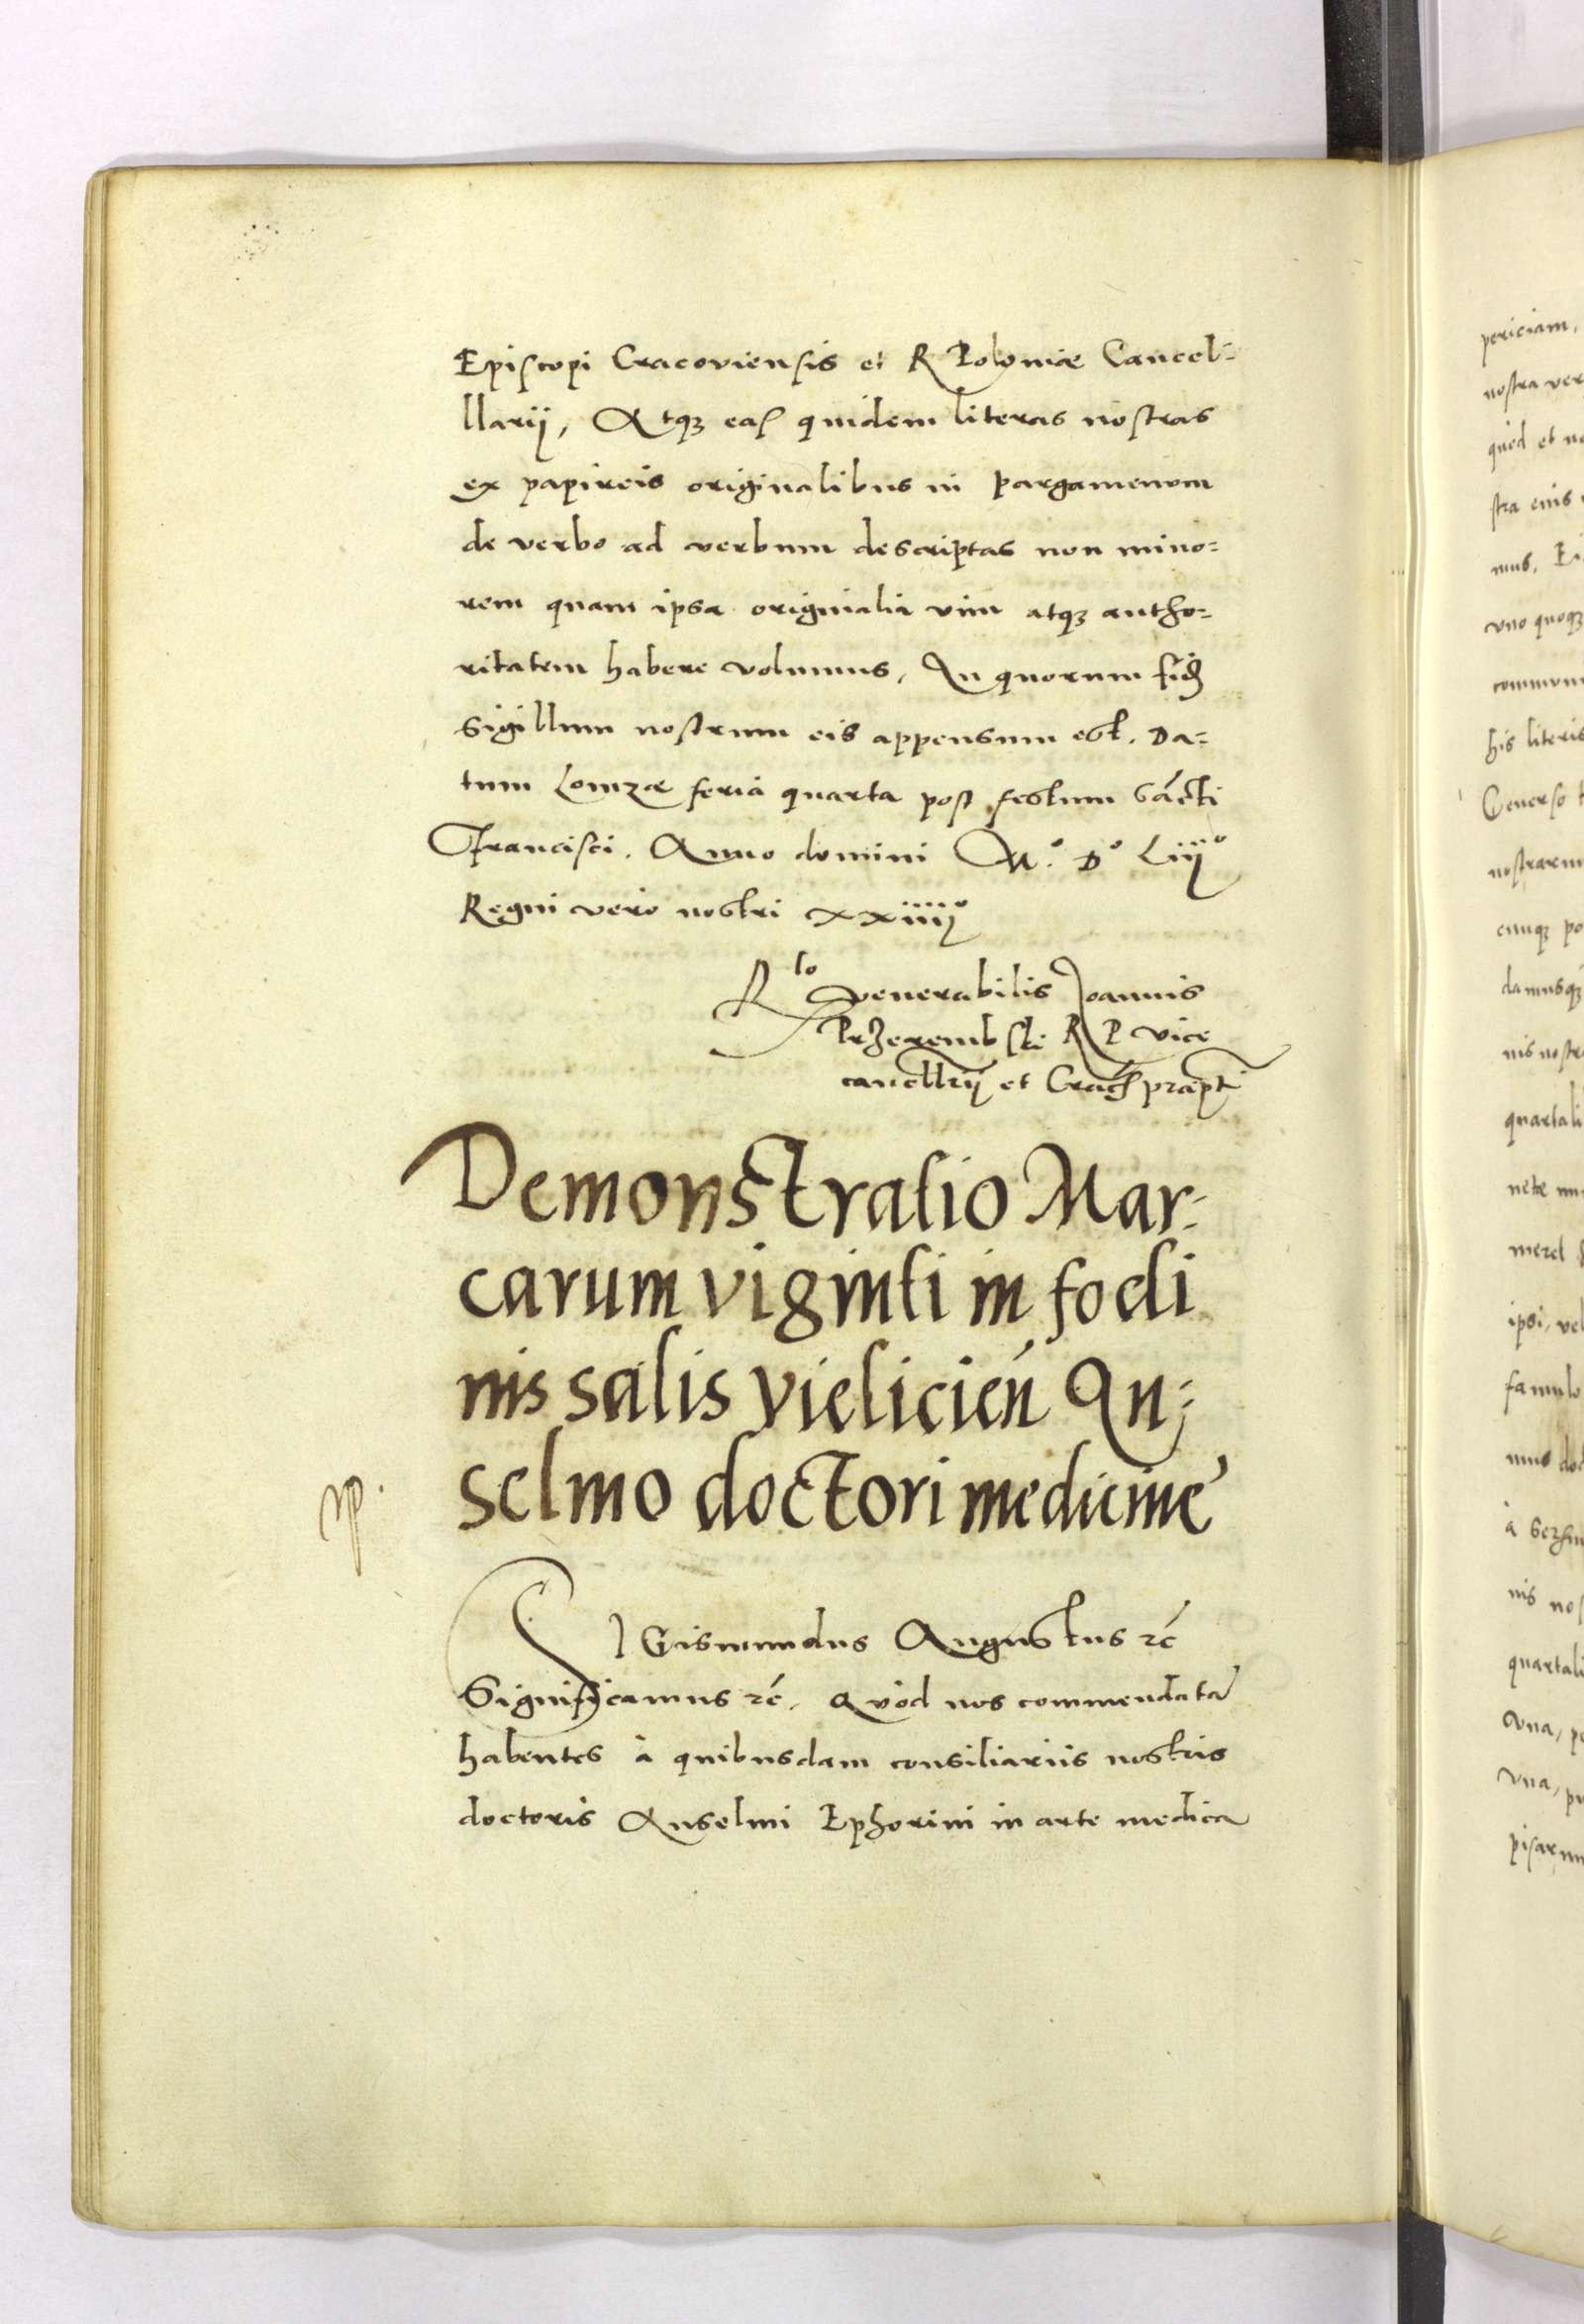 Episcopi Cracoviensis et R Poloniæ Cancel-
llarij, Atq₃ eas quidem literas nostras
ex papireis originalibus in pargamenom
de verbo ad verbum descriptas non mino=
rem quam ipsa originalia vim atq₃ autho=
ritatem habere volumus, In quorum fid
sigillum nostrum eis appensum est. Da=
tum Lomzæ feria quarta post festum Sācti
Francisci. Anno domini M.° D° Liij°
Regni vero nostri xxiiij°
R^lo Venerabilis Joannis
Przerembski R P vice
cancllrij et Crac præpti
Demonstratio Mar-
carum viginti in fodi
nis salis Vieliciēn An-
selmo doctori medicine
np.
SIGismundus Augustus rc̄
Significamus rc̄. Quod nos commendatā
habentes à quibusdam consiliariis nostris
doctoris Anselmi Ephorini in arte medica
periciam,
nostra ver
quod et no
stra eius
mus. Ei
uno quoq₃
commun
his literis
Generso
nostraru
cunq₃ po
damusq₃
nis nostr
quartali
netæ
mercl
ipsi, vel
famulo
mus doc
à
nis nos
quartali
Una, pe
Una, pu
pisarum